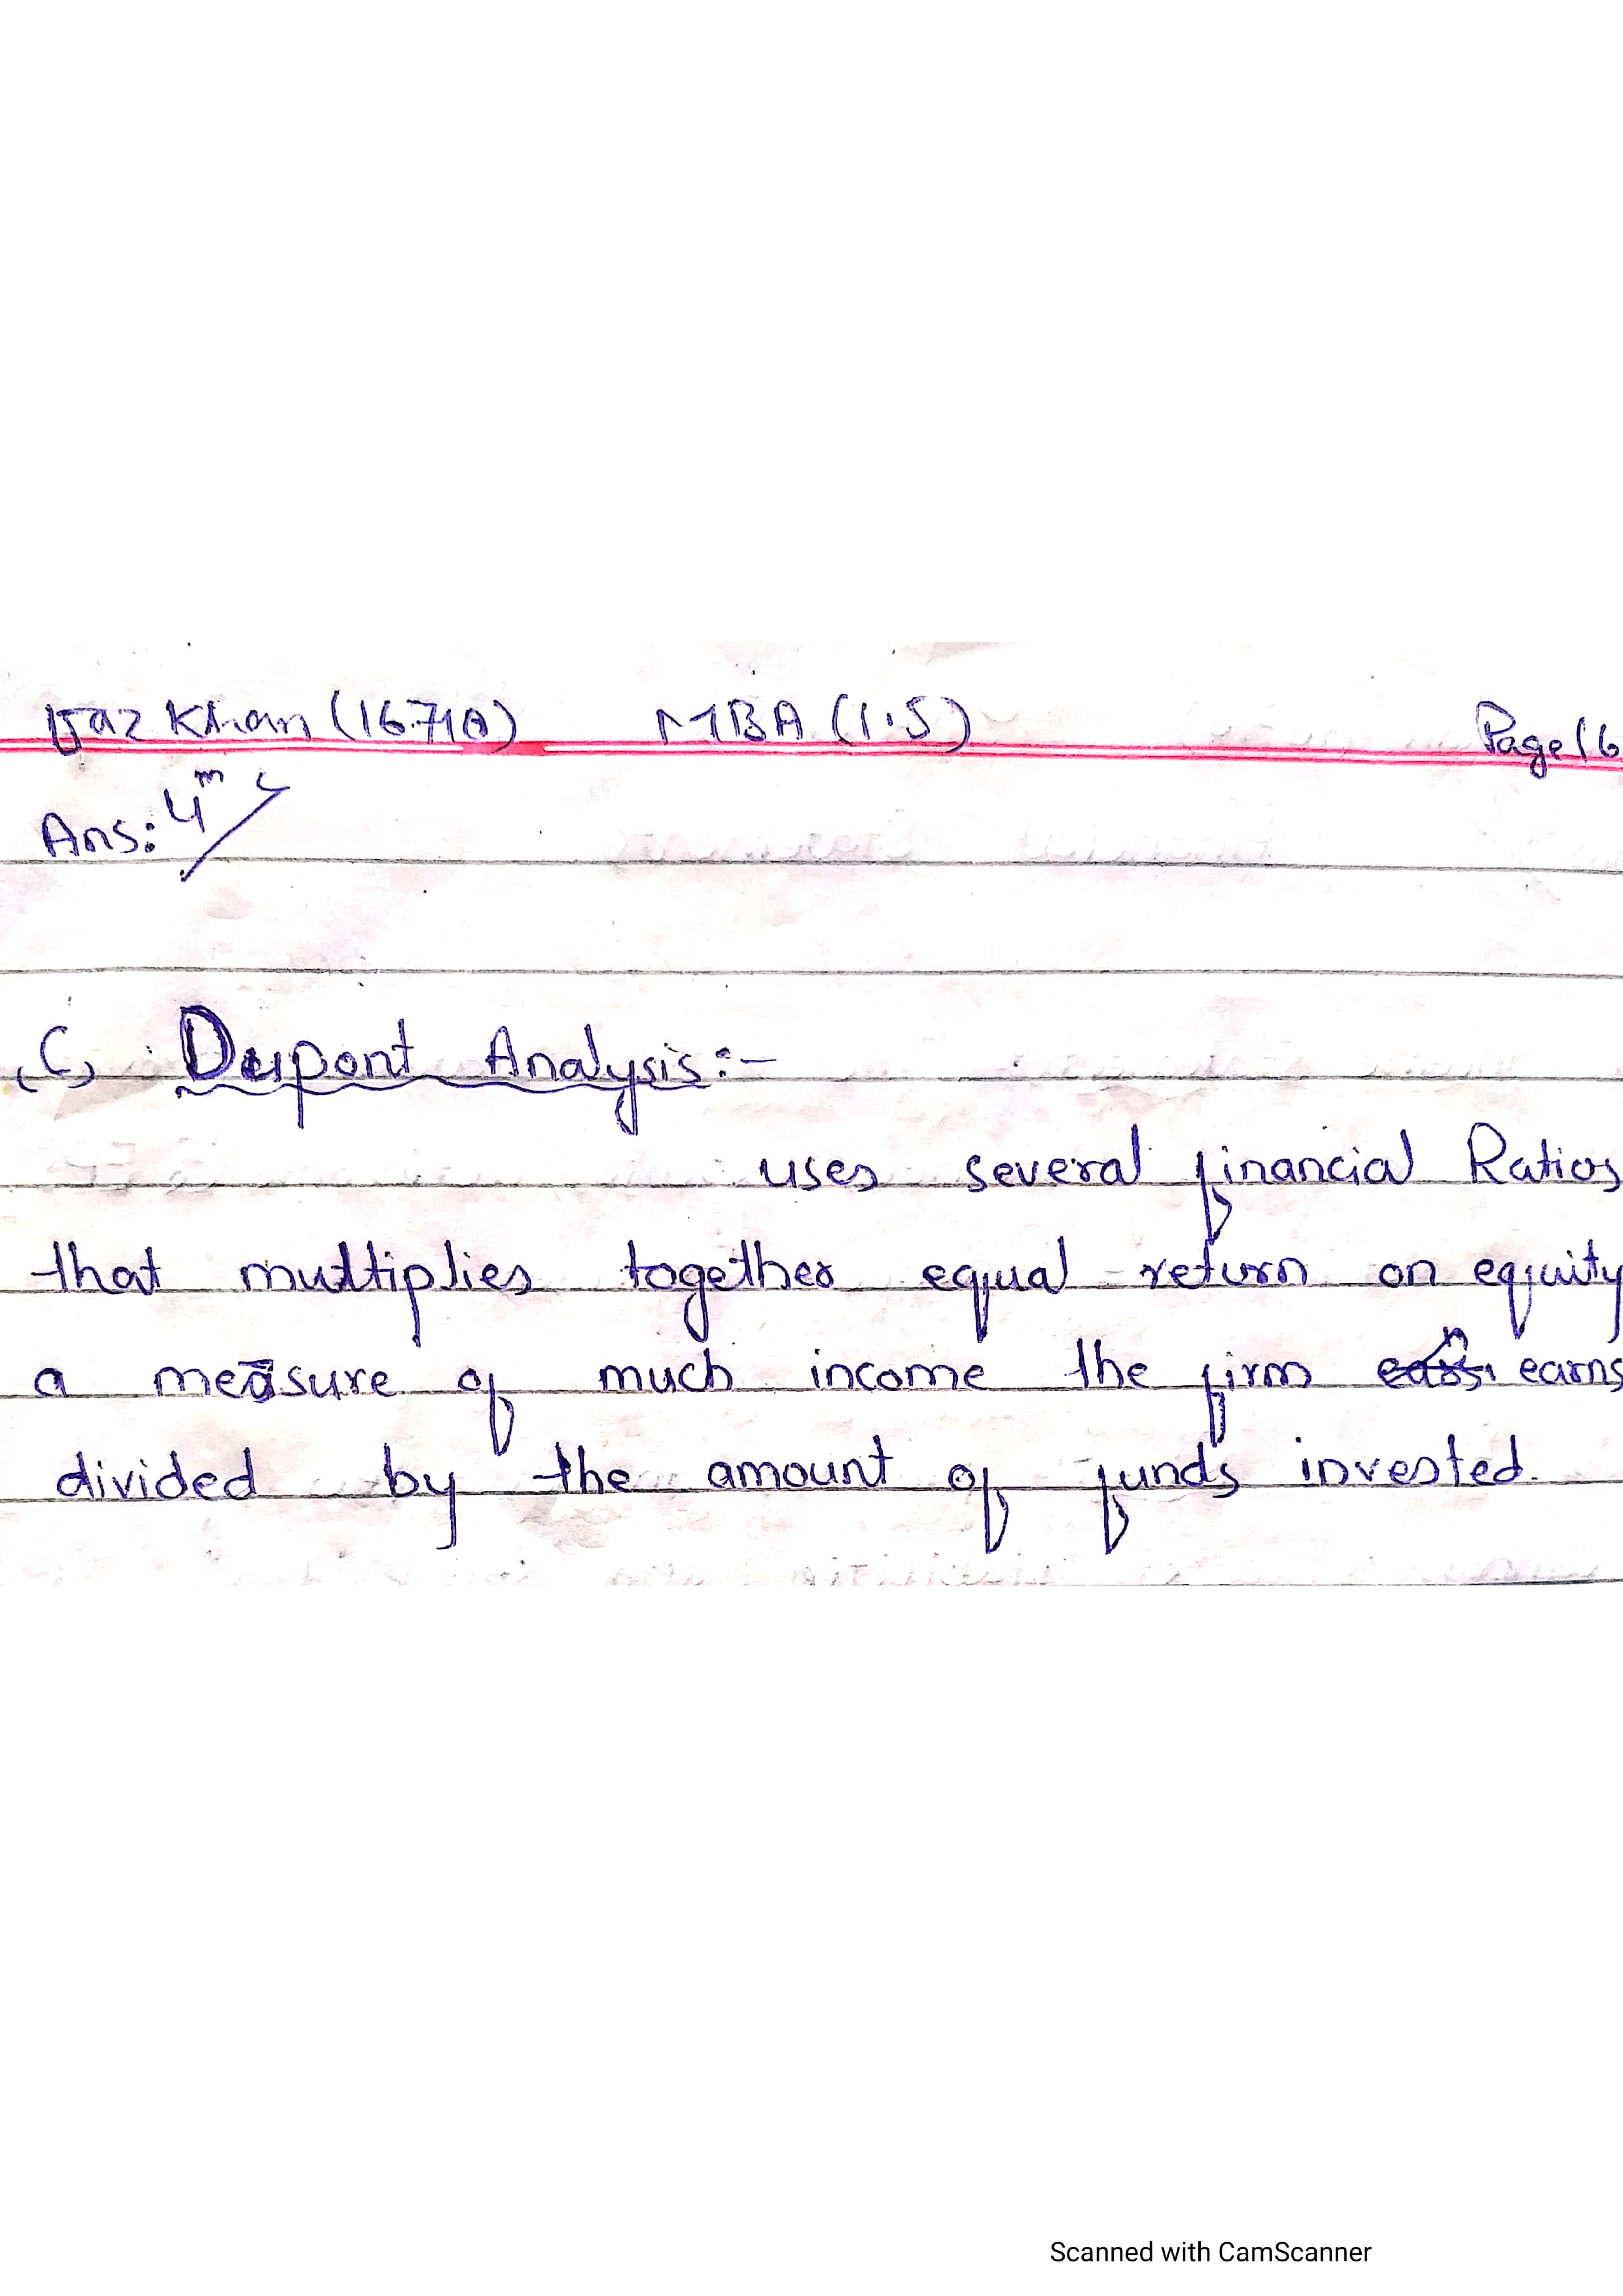 Ijaz Khan (16710) MBA (1.5) Page 16
Ans: 4
(C) Dupont Analysis:-
uses several financial Ratios
that multiplies together equal return on equity
a measure of much income the firm earns
divided by the amount of funds invested.
Scanned with CamScanner